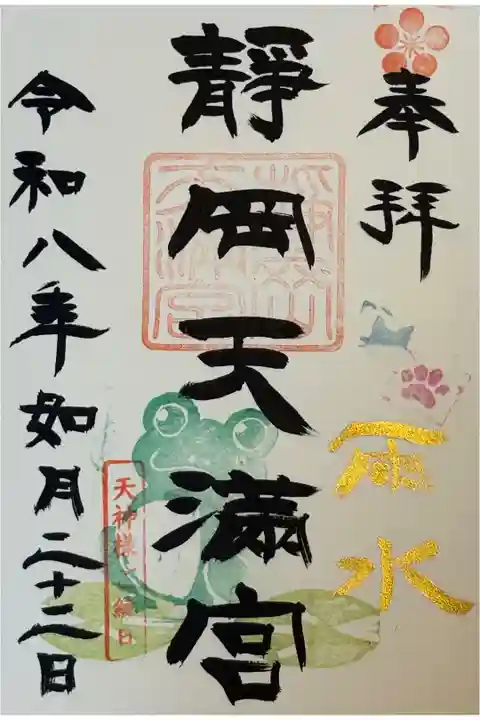 奉拝
雨水
靜岡天満宮
天神様ご縁日
令和八年如月二十二日